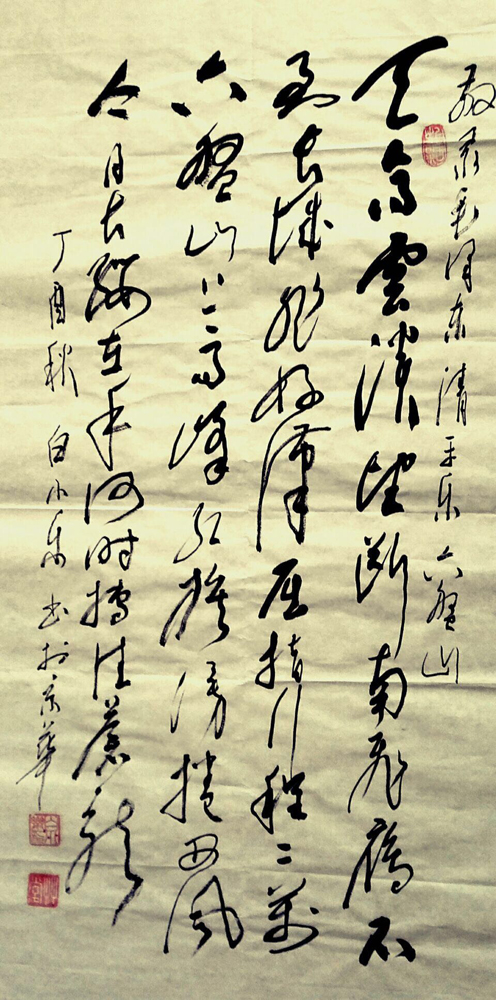 敬录毛泽东清平乐六盤山
天高雲淡望断南飛雁不
到长城非好漢屈指行程二萬
六盤山上高峰红旗漫捲西风
今日长缨在手何时缚住蒼龙
丁酉秋白小乐书於京華